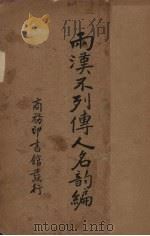 兩漢不列傳人名韵編
商務印書館發行